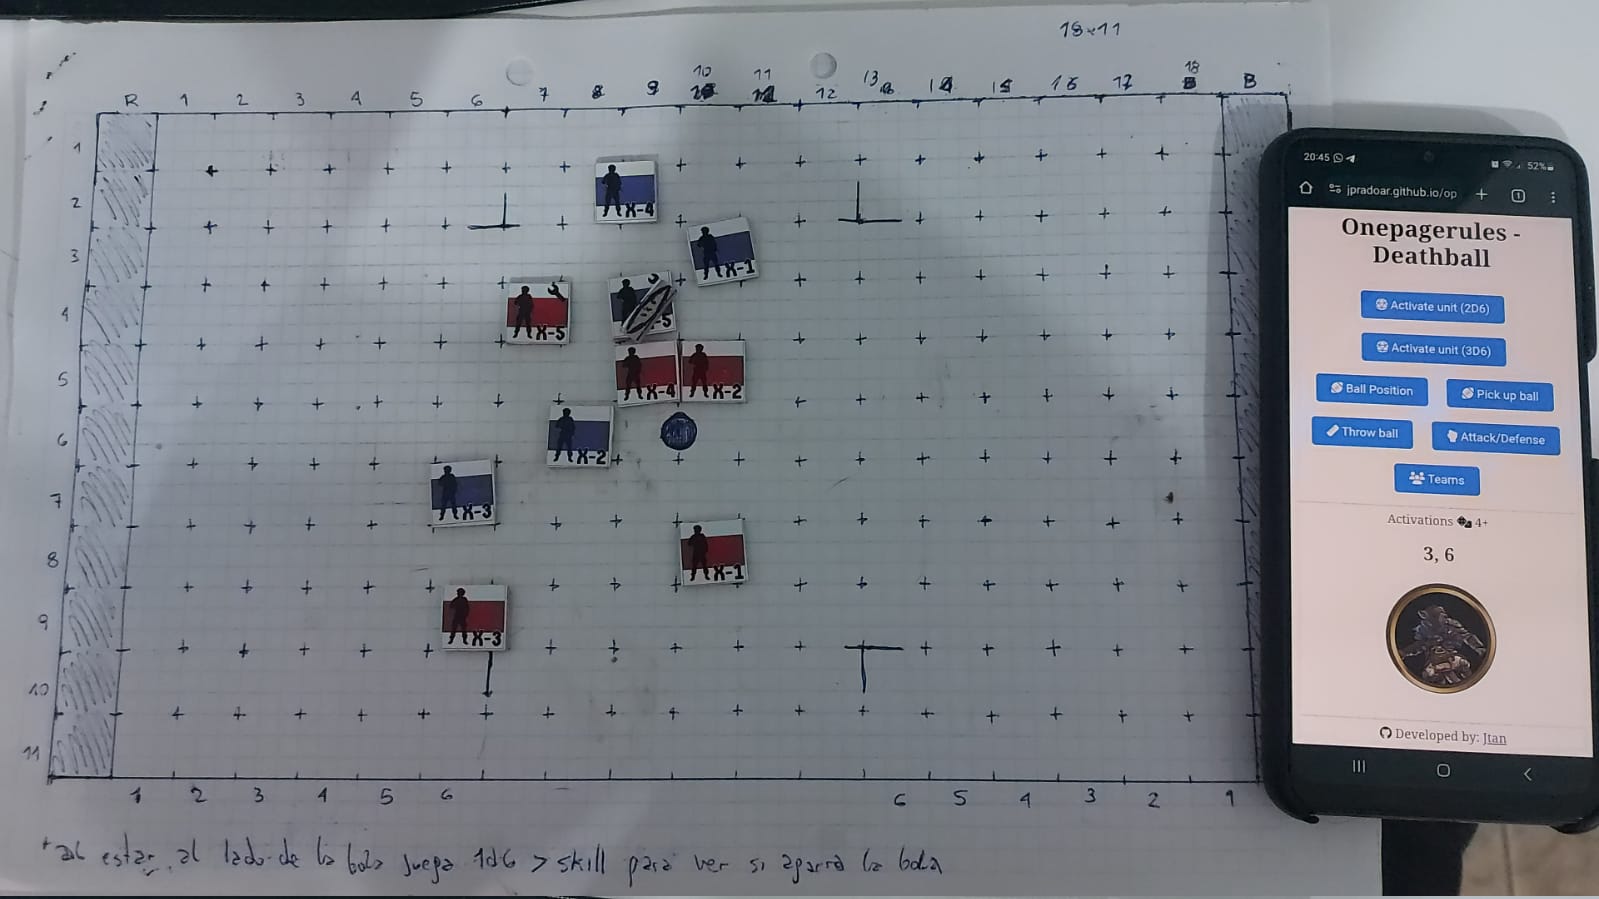 18x11
R 1 2 3 4 5 6 7 8 9 10 11 12 13 14 15 16 17 18 B
1
2
3
4
5
6
7
8
9
10
11
X-4
X-1
X-5
-5
X-4 X-2
X-2
X-3
X-1
X-3
1 2 3 4 5 6 6 5 4 3 2 1
al estar al lado de la bola juega 1d6 > skill para ver si agarra la bola
20:45
52%
jpradoar.github.io/op
1
Onepagerules -
Deathball
Activate unit (2D6)
Activate unit (3D6)
Ball Position
Pick up ball
Throw ball
Attack/Defense
Teams
Activations 4+
3, 6
Developed by: Jtan